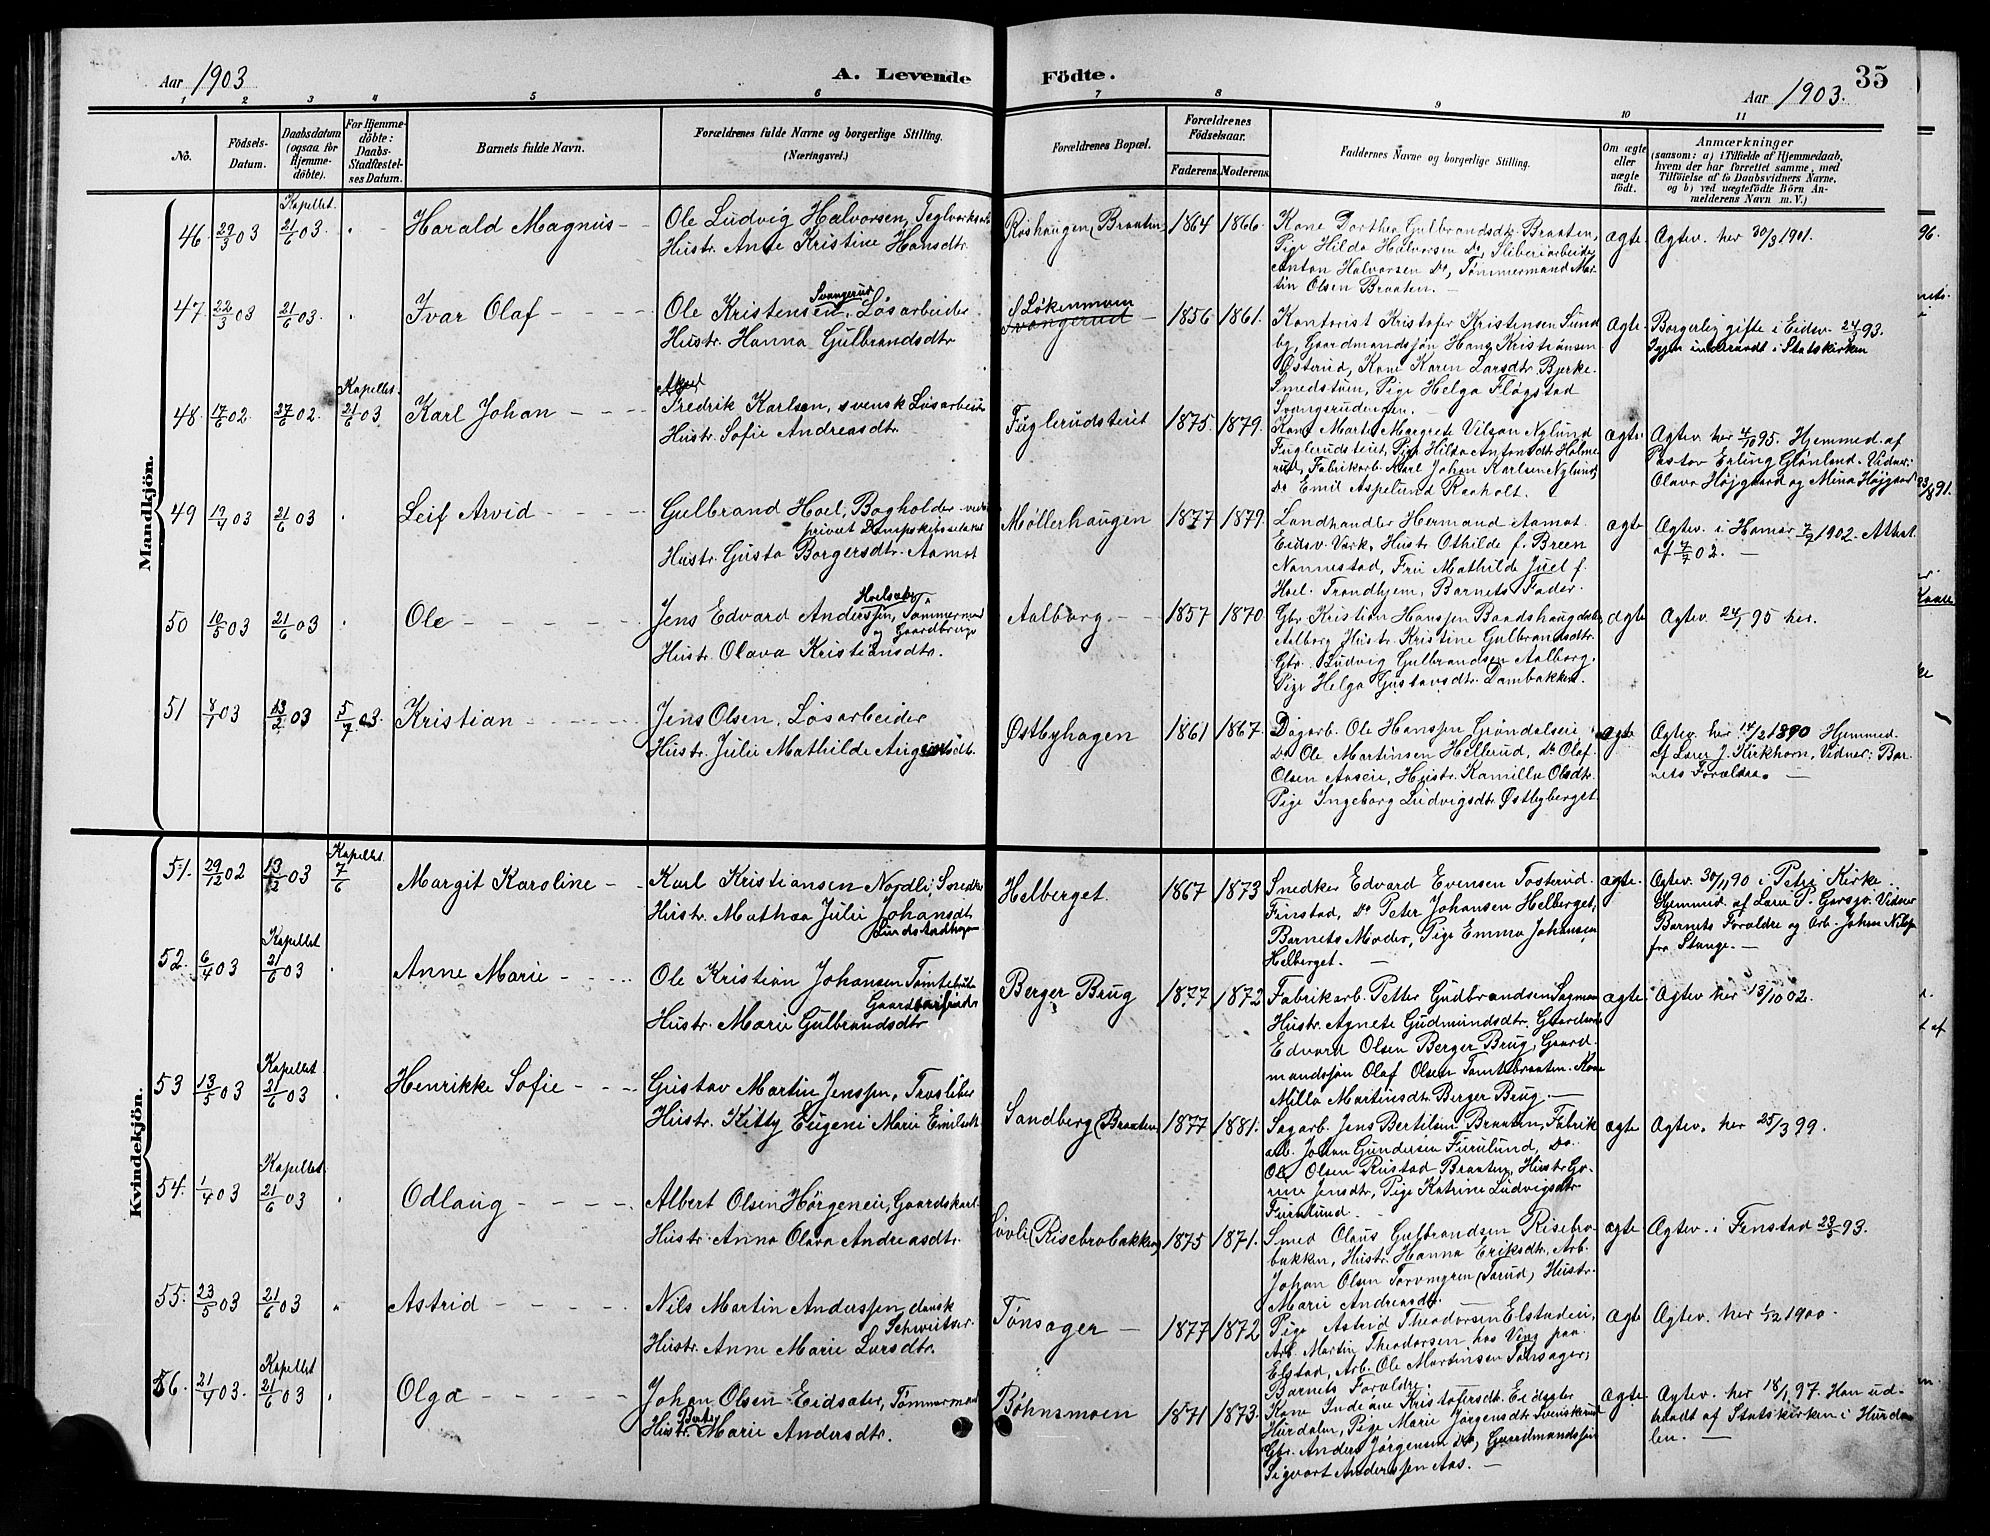 Aar 1903 A. Levende Födte. Aar 1903. 35
1 2 3 4 5 6 7 8 9 10 11
No. Födsels-Datum. Daabsdatum (ogsaa for Hjemme-döbte). For Hjemme-döbte: Daabs-Stadfæstel-ses Datum. Barnets fulde Navn. Forældrenes fulde Navne og borgerlige Stilling. (Næringsvei.) Forældrenes Bopæl. Forældrenes Födselsaar. Faderens. Moderens. Faddernes Navne og borgerlige Stilling. Om ægte eller uægte födt. Anmærkninger (saasom: a) i Tilfælde af Hjemmedaab, hvem der har forrettet samme, med Tilföielse af to Daabsvidners Navne, og b) ved uægtefödte Börn An-melderens Navn m. V.)
Mandkjön.
46. 29/3 03 Kapellet 21/6 03. Harald Magnus
Ole Ludvig Halvorsen,
Hustr. Anne Kristine Hansdtr.
Roshaugen (Braaten) 1864 1866.
Kone Dorthea Gulbrandsdtr. Braaten,
Pige Hilda Halvorsen Do, Sliberiarbeider
Anton Halvorsen Do, Tømmermand Mar-
tin Olsen Braaten.
ægte Ægtev. her 30/3 1901.
47. 22/3 03 21/6 03. Ivar Olaf
Ole Kristensen Svangerud, Løsarbeider
Hustr. Hanna Gulbrandsdtr.
Løkenmoen
Svangerud
1856 1861.
Kontorist Kristofer Kristensen Sund
by, Gaardmandssøn Hans Kristiansen
Østerud, Kone Karen Larsdtr. Bjerke
Smedstuen, Pige Helga Fløgstad
Svangsrudengen.
ægte Borgerlig gifte i Eidsv. 93.
Igjen indtraadt i Statskirken
48. 17/6 02 27/6 02. Kapellet 21/6 03 Karl Johan
Fredrik Karlsen, svensk Løsarbeider
Hustr. Sofie Andreasdtr.
Fuglerudsteiet 1875. 1879.
Kone Marte Margrete Vilson Nylund
Fuglerudsteiet, Pige Hilda Antonsdtr. Holme
rud, Fabrikarb. Karl Johan Karlsen Nylund,
Do Emil Aspelund Raaholt.
ægte. Ægtev. her 95. Hjemmed. af
Pastor Erling Grønland. Vidner:
Olava Højgaard og Mina Højgaard
49 19/4 03 21/6 03 Leif Arvid
Gulbrand Hoel, Bogholder ved
privat Dampskibsselskab
Hustr. Gusta Borgersdtr. Aamot
Møllerhaugen 1877 1879.
Landhandler Hermand Aamot
Eidsv. Værk, Hustr. Othilde f. Breen
Nannestad, Fru Mathilde Juel f.
Hoel. Trondhjem, Barnets Fader.
ægte Ægtev. i Hamar 7/7 1902. Attest
af 7/7 02.
50 10/5 03 21/6 03 Ole
Jens Edvard Anderssen, Tømmermand
og Gaardbruger
Hustr. Olava Kristiansdtr.
Aalborg. 1857 1870
Gbr. Kristian Hanssen
Aalborg Hustr. Kristine Gulbrandsdtr.
Gbr. Ludvig Gulbrandsen Aalborg.
Pige Helga Gustavsdtr. Dambakken.
ægte Ægtev. 95 her.
51 8/1 03 13/2 03 5/7 03. Kristian
Jens Olsen, Løsarbeider
Hustr. Julie Mathilde
Østbyhagen 1861 1867.
Dagarb. Ole Hanssen Grøndalseie
Do Ole Martinsen Hellerud, Do Olaf
Olsen Aaseie, Hustr. Kamilla Olsdtr.
Pige Ingeborg Ludvigsdtr. Østbyberget
ægte Ægtev. her 14/2 1890 Hjemmed.
af Lærer J. Kirkhorn, Vidner: Bar-
nets Forældre.
Kvindekjön.
51. 29/12 02 13/2 03 Kapellet 7/6 Margit Karoline
Karl Kristiansen Nordli, Snedker
Hustr. Mathea Julie Johansdtr.
Helberget. 1867 1873
Snedker Edvard Evensen Tosterud
Finstad, Do Peter Johansen Helberget,
Barnets Moder, Pige Emma Johansen
Helberget.
ægte. Ægtev. 30/11 90 i Petri Kirke
Hjemmed. af Lærer P. Garsjø. Vidner
Barnets Forældre og Arb. Johan
fra Stange.
52. 6/4 03 Kapellet 21/6 03 Anne Marie
Ole Kristian Johansen
Hustr. Marie Gulbrandsdtr
Berger Brug 1877 1872
Fabrikarb. Petter Gudbrandsen Sagmoen
Hustr. Agnete Gudmundsdtr.
Edvard Olsen Berger Brug, Gaard-
mandssøn Olaf Olsen Tomtebraaten. Kone
Milla Martinsdtr. Berger Brug.
ægte Ægtev her 13/10 02.
53 13/5 03 Kapellet 21/6 03 Henrikke Sofie
Gustav Martin Jenssen, Træsliber
Hustr. Kitty Eugeni Marie
Sandberg (Braaten) 1877 1881.
Sagarb. Jens Bertilsen Braaten, Fabrik
arb. Johan Gundersen Furulund, Do
Ole Olsen Rustad Braaten, Hustr. Go-
rine Jensdtr, Pige Katrine Ludvigsdtr
Furulund.
ægte Ægtev. her 25/3 99.
54. 1/4 03 Kapellet 21/6 03 Odlaug
Albert Olsen Gaardskarl
Hustr. Anna Olava Andreasdtr.
Løvli (Risebrobakken) 1875 1871.
Smed Olaus Gulbrandsen Risebro-
bakken, Hustr. Hanna Eriksdtr. Arb.
Johan Olsen (Tærud) Hustr.
Marie Andreasdtr.
ægte Ægtev. i Fenstad 93.
55. 23/5 03 21/6 03 Astrid
Nils Martin Anderssen, dansk
Schweitser
Hustr. Anne Marie Larsdtr.
Tønsager 1877 1872
Pige Astrid Theodorsen Elstadeie,
Arb. Martin Theodorsen hos Veng paa
Elstad, Arb. Ole Martinsen Tønsager,
Barnets Forældre.
ægte Ægtev. her 1/12 1900.
56. 21/4 03. Kapellet 21/6 03 Olga
Johan Olsen Eidsater, Tømmermand
Hustr. Berthe Marie Andersdtr.
Bøhnsmoen 1871 1873.
Kone Indiane Kristofersdtr. Eidsater
Hurdalen, Pige Marie Jørgensdtr. Svenskerud
Gbr. Anders Jørgensen Do, Gaardmandssøn
Sigvart Anderssen Aas.
ægte Ægtev. her 18/1 97. Han ud-
traadt af Statskirken i Hurda-
len.